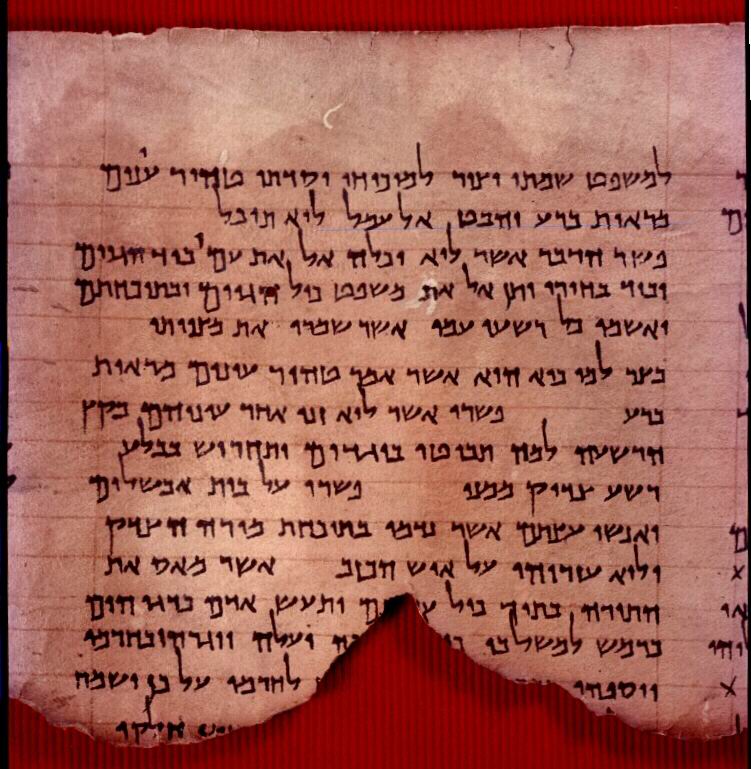 למשפט שמתו וצור למוכיחו יסדתו טהור עינים
מראות ברע והבט אל עמל לוא תוכל
פשר הדבר אשר לוא יכלה אל את עמו ביד הגוים
וביד בחירו יתן אל את משפט כול הגוים ובתוכחתם
יאשמו כל רשעי עמו אשר שמרו את מצוותו
בצר למו כיא הוא אשר אמר טהור עינים מראות
ברע פשרו אשר לוא זנו אחר עיניהם בקץ
הרשעה למה תביטו בוגדים ותחריש בבלע
רשע צדיק ממנו פשרו על בית אבשלום
ואנשי עצתם אשר נדמו בתוכחת מורה הצדק
ולוא עזרוהו על איש הכזב אשר מאס את
התורה בתוך כול ותעש אדם כדגי הים
כרמש למשל בו יעלה ויגרהו בחרמו
ויספהו לחרמו על כן ישמח
חלקו